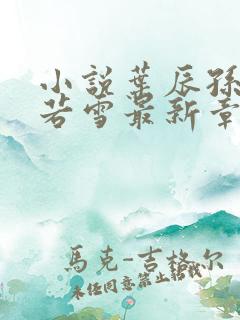 小說葉辰孫
若雪最新章
馬克-吉格尔
未经同意禁止转载